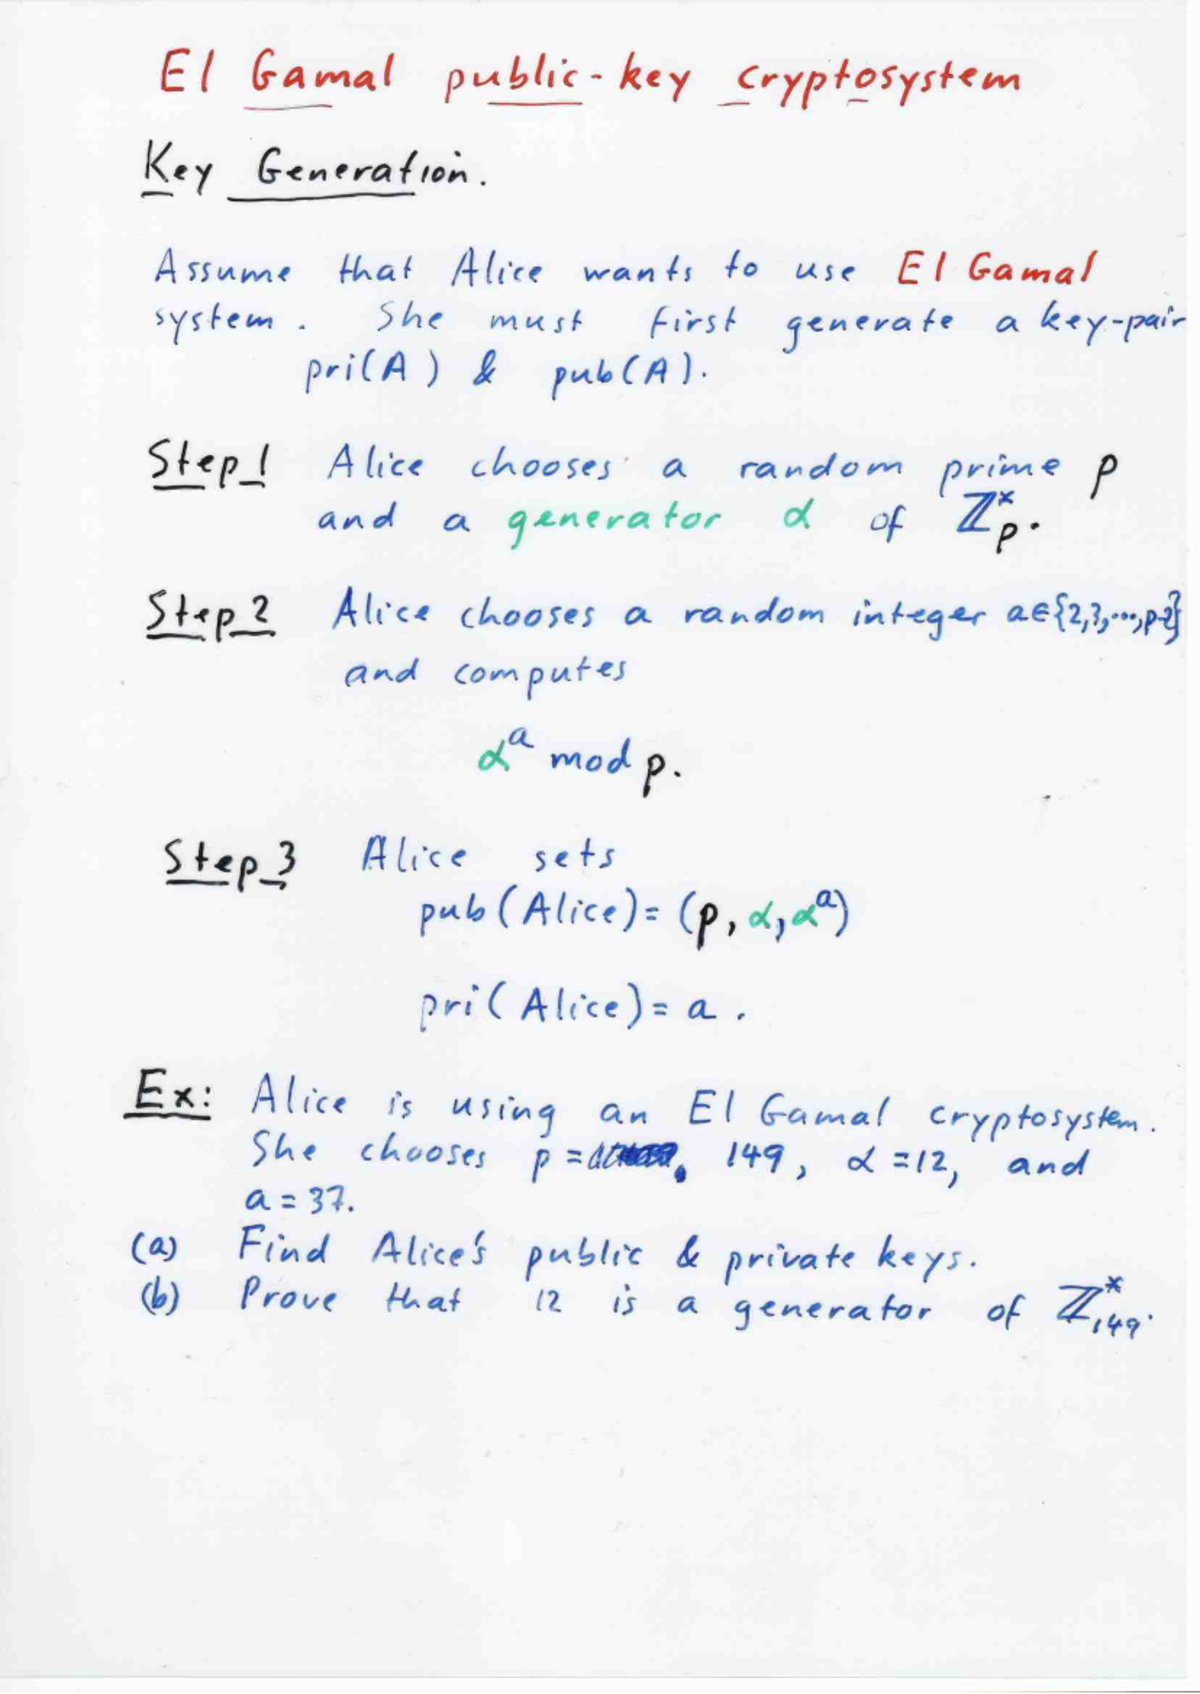 El Gamal public-key cryptosystem
Key Generation.
Assume that Alice wants to use El Gamal
system. She must first generate a key-pair
pri(A) & pub(A).
Step 1 Alice chooses a random prime p
and a generator α of ℤₚ*.
Step 2 Alice chooses a random integer a∈{2,3,...,p-2}
and computes
αᵃ mod p.
Step 3 Alice sets
pub(Alice)= (p, α, αᵃ)
pri(Alice)= a.
Ex: Alice is using an El Gamal cryptosystem.
She chooses p = 149, α =12, and
a = 37.
(a) Find Alice's public & private keys.
(b) Prove that 12 is a generator of ℤ₁₄₉*.